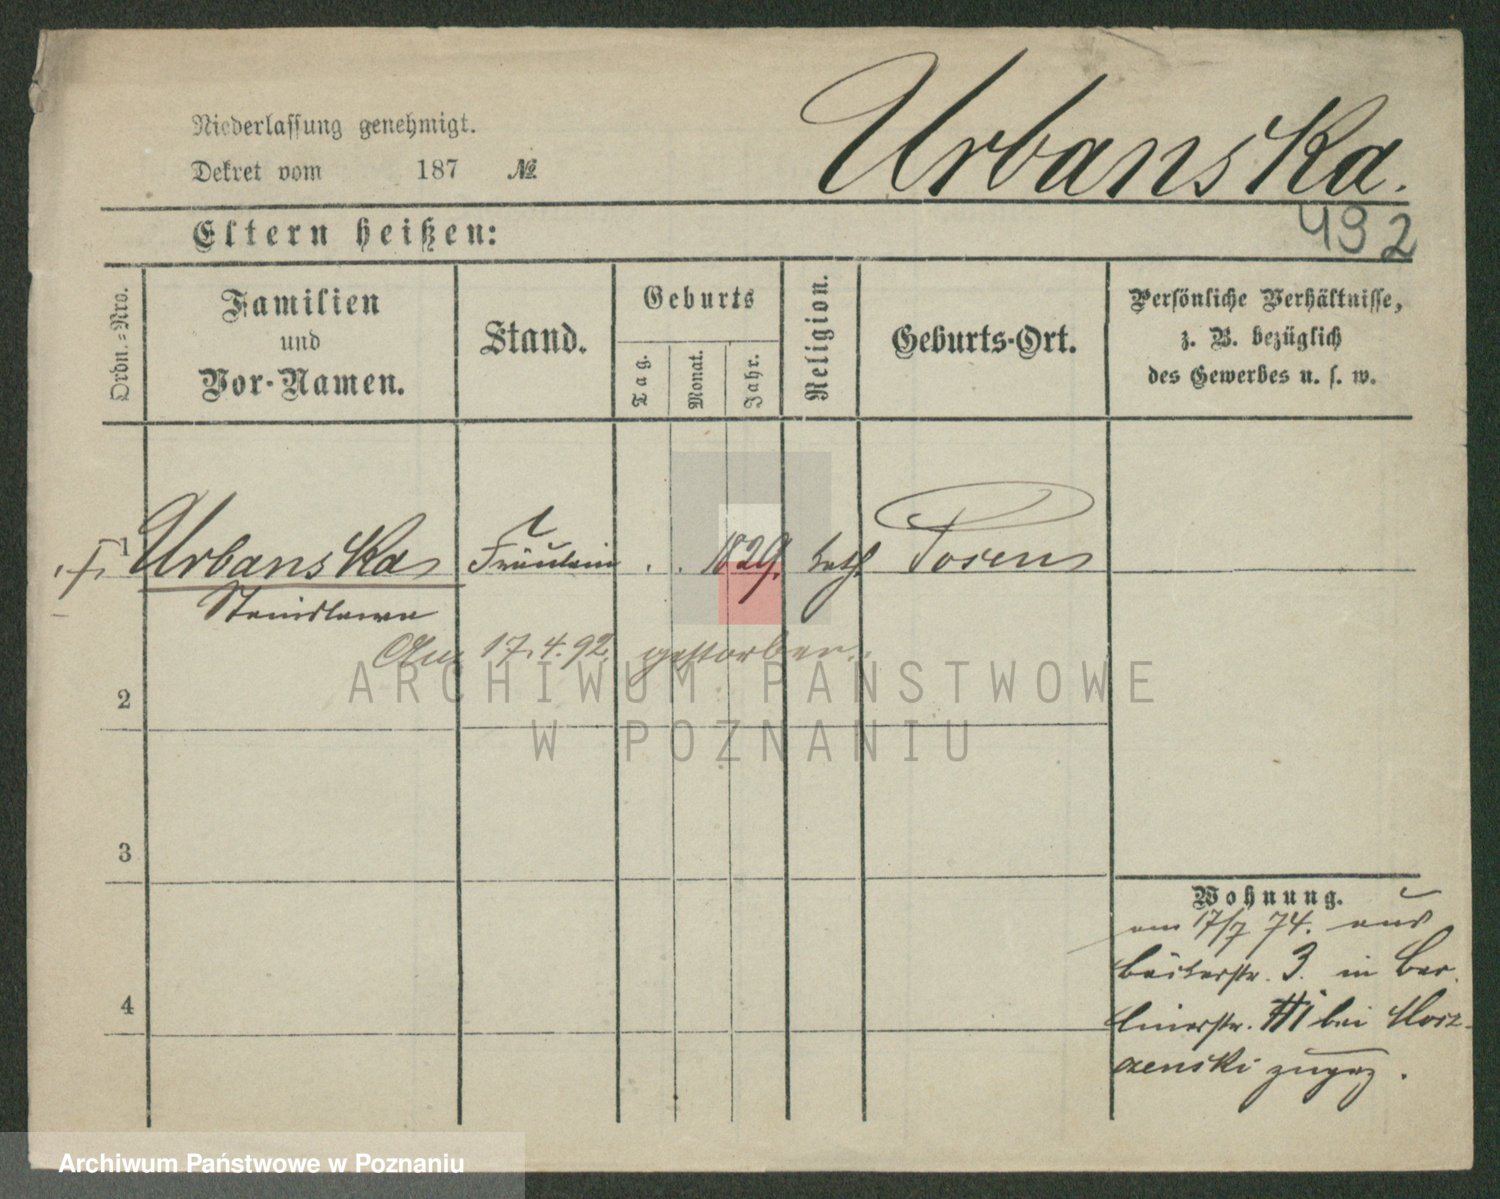 Urbanska.
Niederlassung genehmigt.
Dekret vom 187 №
492
Eltern heißen:
Ordn.-Nro.
Familien
und
Vor-Namen.
Stand.
Geburts
Tag.
Monat.
Jahr.
Religion.
Geburts-Ort.
Persönliche Verhältnisse,
z. B. bezüglich
des Gewerbes u. s. w.
1 Urbanska Fräulein . . 1829. kath Posen
Stanislawa
Am 17.4.92. gestorben.
2
3
4
Wohnung.
am 17/7 74. aus
Bäckerstr. 3. in Ber-
linerstr. bei
zenski zugez.
ARCHIWUM PAŃSTWOWE
W POZNANIU
Archiwum Państwowe w Poznaniu